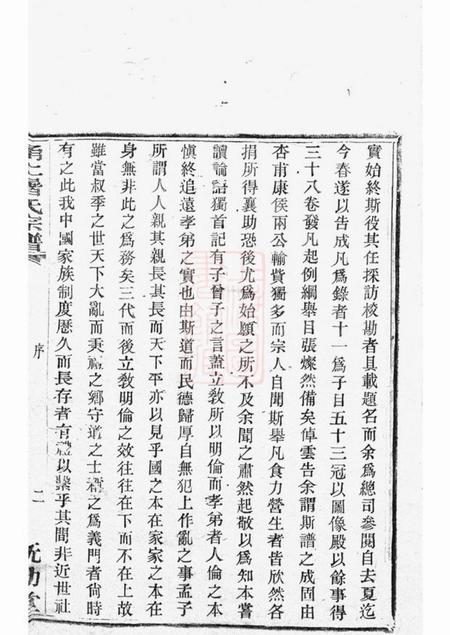 實始終斯役其任採訪校勘者具載題名而余爲總司參閱自去夏迄
今春遂以告成凡爲錄者十一爲子目五十三冠以圖像殿以餘事得
三十八卷發凡起例綱舉目張燦然備矣倬雲告余謂斯譜之成固由
杏甫康侯兩公輸貲獨多而宗人自聞斯舉凡食力營生者皆欣然各
捐所得襄助恐後尤爲始願之所不及余聞之肅然起敬以爲知本嘗
讀論語獨首記有子曾子之言蓋立敎所以明倫而孝弟者人倫之本
愼終追遠孝弟之實也由斯道而民德歸厚自無犯上作亂之事孟子
所謂人人親其親長其長而天下平亦以見乎國之本在家家之本在
身無非此之爲務矣三代而後立敎明倫之效往往在下而不在上故
雖當叔季之世天下大亂而秉禮之鄕守道之士稱之爲義門者尙時
有之此我中國家族制度歷久而長存者有禮以繫乎其間非近世社
甬上屠氏宗譜
序
二
旣勤堂